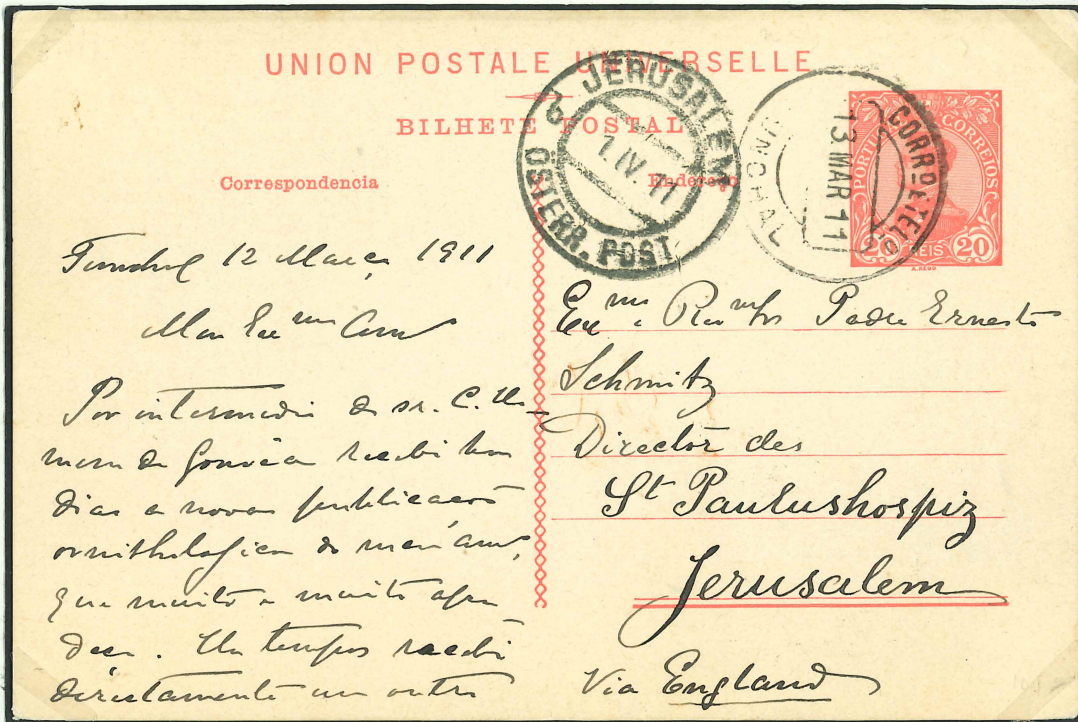 UNION POSTALE UNIVERSELLE
BILHETE POSTAL
Correspondencia
Endereço
JERUSALEM
1.IV.11
ÖSTERR. POST
CORRO E TELO
13 MAR 11
FUNCHAL
PORTUGAL CORREIOS
20 REIS 20
A. REGO
Funchal 12 Março 1911
Meu Exmo Amo
Por intermedio do sr. C. de
recebi tem
dias a nova publicacão
ornithologica do meu amo,
que muito e muito agra
dece. Ha tempos recebi
directamente um outro
Exmo e Revmo Snr Padre Ernesto
Schmitz
Director des
St Paulushospiz
Jerusalem
Via England